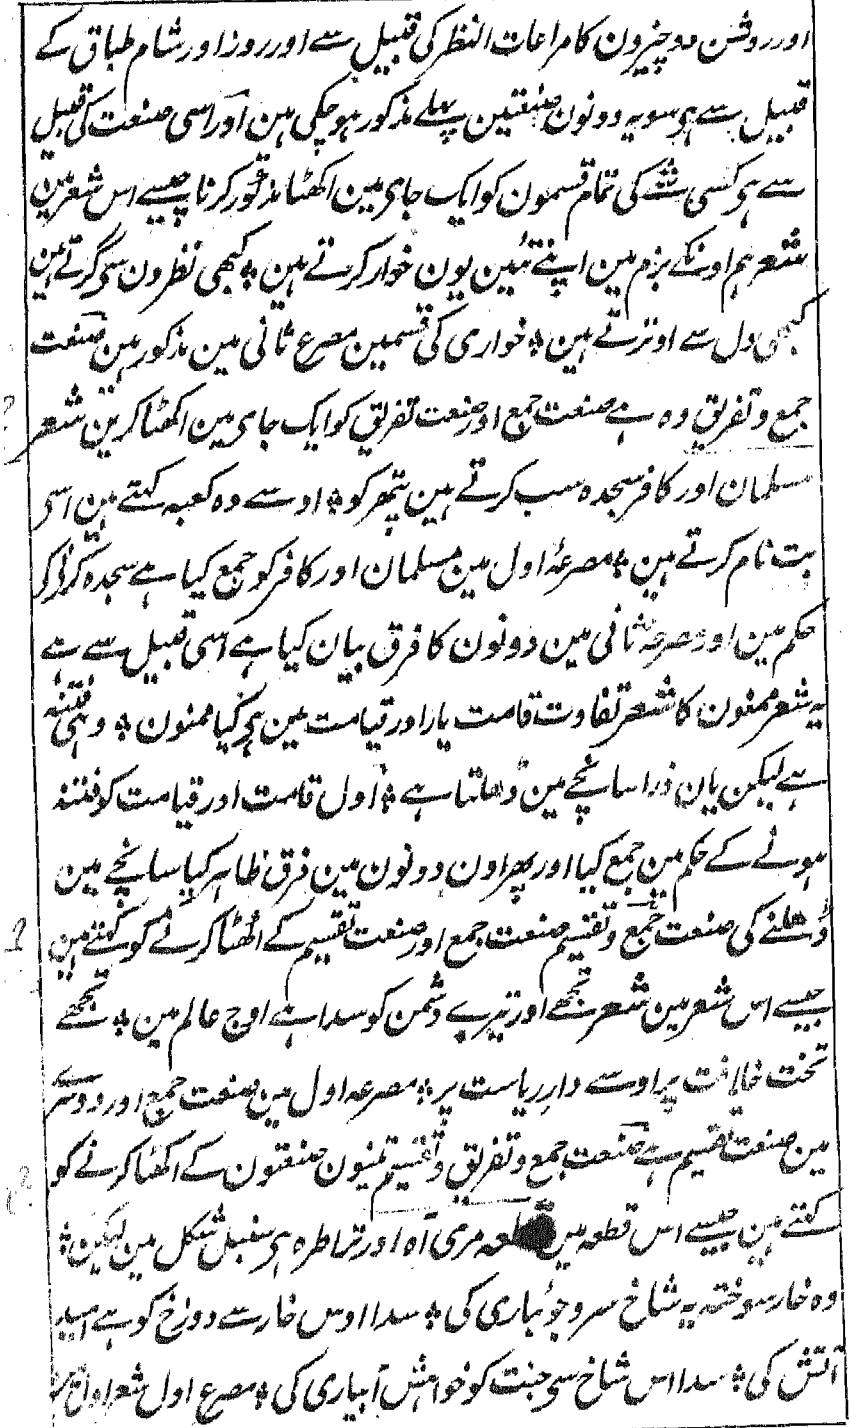 اور روشن دو چیزون کا مراعات النظر کی قبیل سے اور روز اور شام طباق کے
قبیل سے ہو سو یہ دونون صنعتین پہلے مذکور ہو چکی ہین اور اسی صنعت کی قبیل
سے ہی کسی شے کی تمام قسمون کو ایک جا ہی مین اکھٹا مذکور کرنا جیسے اس شعر مین
شعر ہم اونکے بزم مین اپنے تئین یون خوار کرتے ہین ؞ کبھی نظرون سی گرتے ہین
کبھی دل سے اوترتے ہین ؞ خواری کی قسمین مصرع ثانی مین مذکور ہین صنعت
جمع و تفریق وہ ہے صنعت جمع اور صنعت تفریق کو ایک جا ہی مین اکھٹا کرین شعر
مسلمان اور کافر سجدہ سب کرتے ہین پتھر کو ؞ اوسے وہ کعبہ کہتے ہین اسی
بت نام کرتے ہین ؞ مصرعۂ اول مین مسلمان اور کافر کو جمع کیا ہے سجدہ کرنے کے
حکم مین اور مصرعۂ ثانی مین دونون کا فرق بیان کیا ہے اسی قبیل سے ہے
یہ شعر ممنون کا شعر تفاوت قامت یار اور قیامت مین ہی کیا ممنون ؞ وہی فتنہ
ہے لیکن یان ذرا سانچے مین ڈھلتا ہے ؞ اول قامت اور قیامت کو فتنہ
ہونے کے حکم مین جمع کیا اور پھر اون دونون مین فرق ظاہر کیا سانچے مین
ڈھلنے کی صنعت جمع و تقسیم صنعت جمع اور صنعت تقسیم کے اکھٹا کرنے کو کہتے ہین
جیسے اس شعر مین شعر تجھے اور تیرے دشمن کو سدا ہے اوج عالم مین ؞ تجھے
تخت خلافت پر اوسے دار ریاست پر ؞ مصرعہ اول مین صنعت جمع اور دوسرے
مین صنعت تقسیم ہے صنعت جمع و تفریق و تقسیم تینون صنعتون کے اکھٹا کرنے کو
کہتے ہین جیسے اس قطعہ مین قطعہ مری آہ اور ترا طرہ ہی سنبل شکل مین لیکن ؞
وہ خار سوختہ یہ شاخ سرو جوئباری کی ؞ سدا اوس خار سے دوزخ کو ہے امید
آتش کی ؞ سدا اس شاخ سی جنت کو خواہش آبیاری کی ؞ مصرع اول شعر اول مین